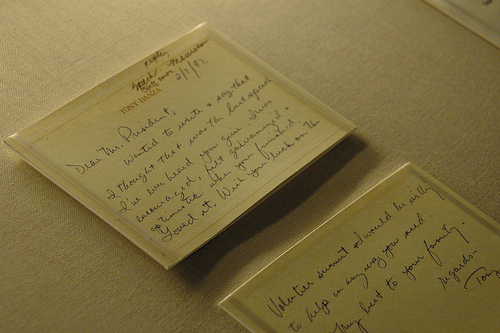 reply
2/7/97
TONY DANZA
Dear Mr. President,
wanted to write & say that
I thought that was the best speech
I've ever heard you give. I was
encouraged, felt galvanized &
optimistic when you finished.
Loved it. Wish you luck on the
Volunteer summit & would be willing
to help in any way you need
My best to your family.
regards.
Tony